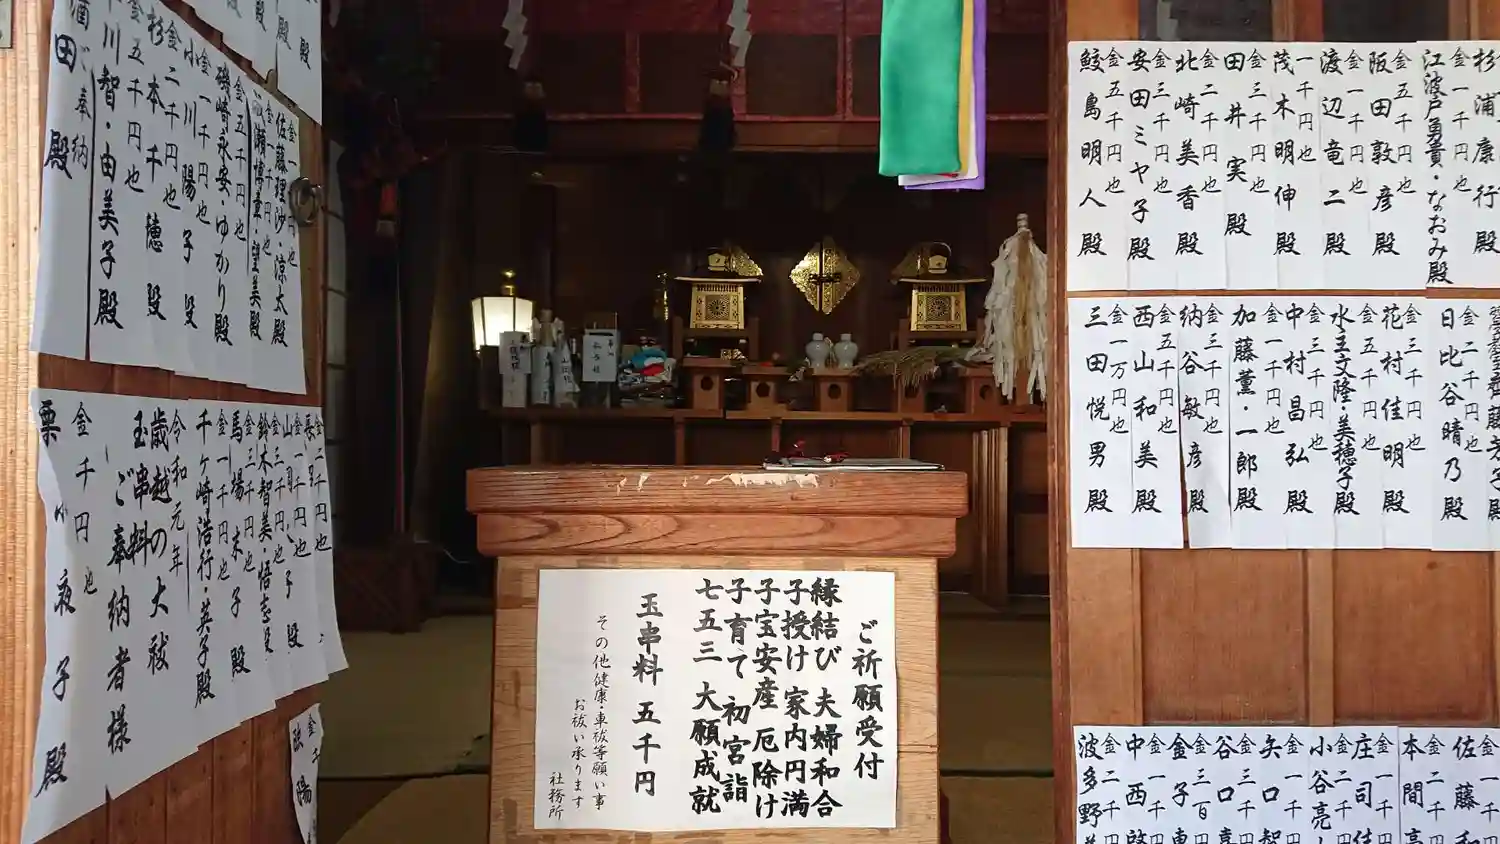 ご祈願受付
縁結び 夫婦和合
子授け 家内円満
子宝安産 厄除け
子育て 初宮詣
七五三 大願成就
玉串料 五千円
その他健康・車祓等願い事
お祓い承ります
社務所
杉浦康行殿
金一千円也
江波戸勇貴・なおみ殿
金五千円也
阪田敦彦殿
金一千円也
渡辺竜二殿
一千円也
茂木明伸殿
金三千円也
田井実殿
金二千円也
北崎美香殿
金三千円也
安田ミヤ子殿
金五千円也
鮫島明人殿
金二千円也
日比谷晴乃殿
金三千円也
花村佳明殿
金五千円也
水主文隆・美穂子殿
金三千円也
中村昌弘殿
金一千円也
加藤薫・一郎殿
金三千円也
納谷敏彦殿
金五千円也
西山和美殿
金一万円也
三田悦男殿
佐藤和
金二千
本間
金一千円
庄司佳
金二千円
小谷亮
金一千
矢口智
金三千
谷口喜
金三百
金子恵
金一千
中西啓
金二千円
波多野
金一千円也
佐藤理沙・涼太殿
金一千円也
金五千円也
磯崎永安・ゆかり殿
金一千円也
小川陽子殿
金二千円也
杉本千穂殿
金五千円也
川智・由美子殿
ご奉納
田殿
金二千円也
金一千円也
金三千円也
鈴木智美・悟志殿
金三千円也
馬場末子殿
金一千円也
千ヶ崎浩行・英子殿
令和元年
歳越の大祓
玉串料
ご奉納者様
金千円也
金千